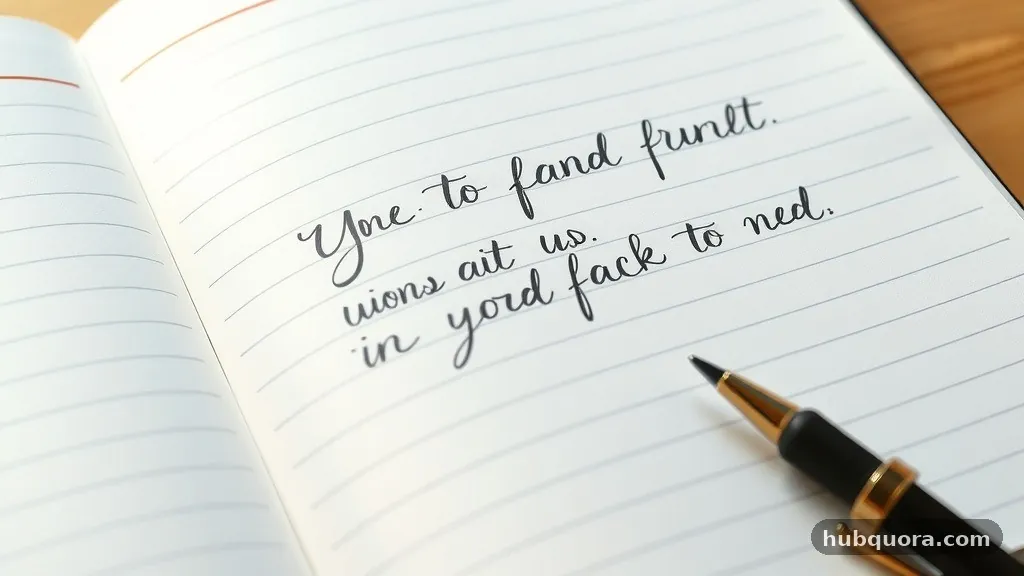 Yne to fand frunlt.
uions ait us.
in yord fack to ned.
hubquora.com